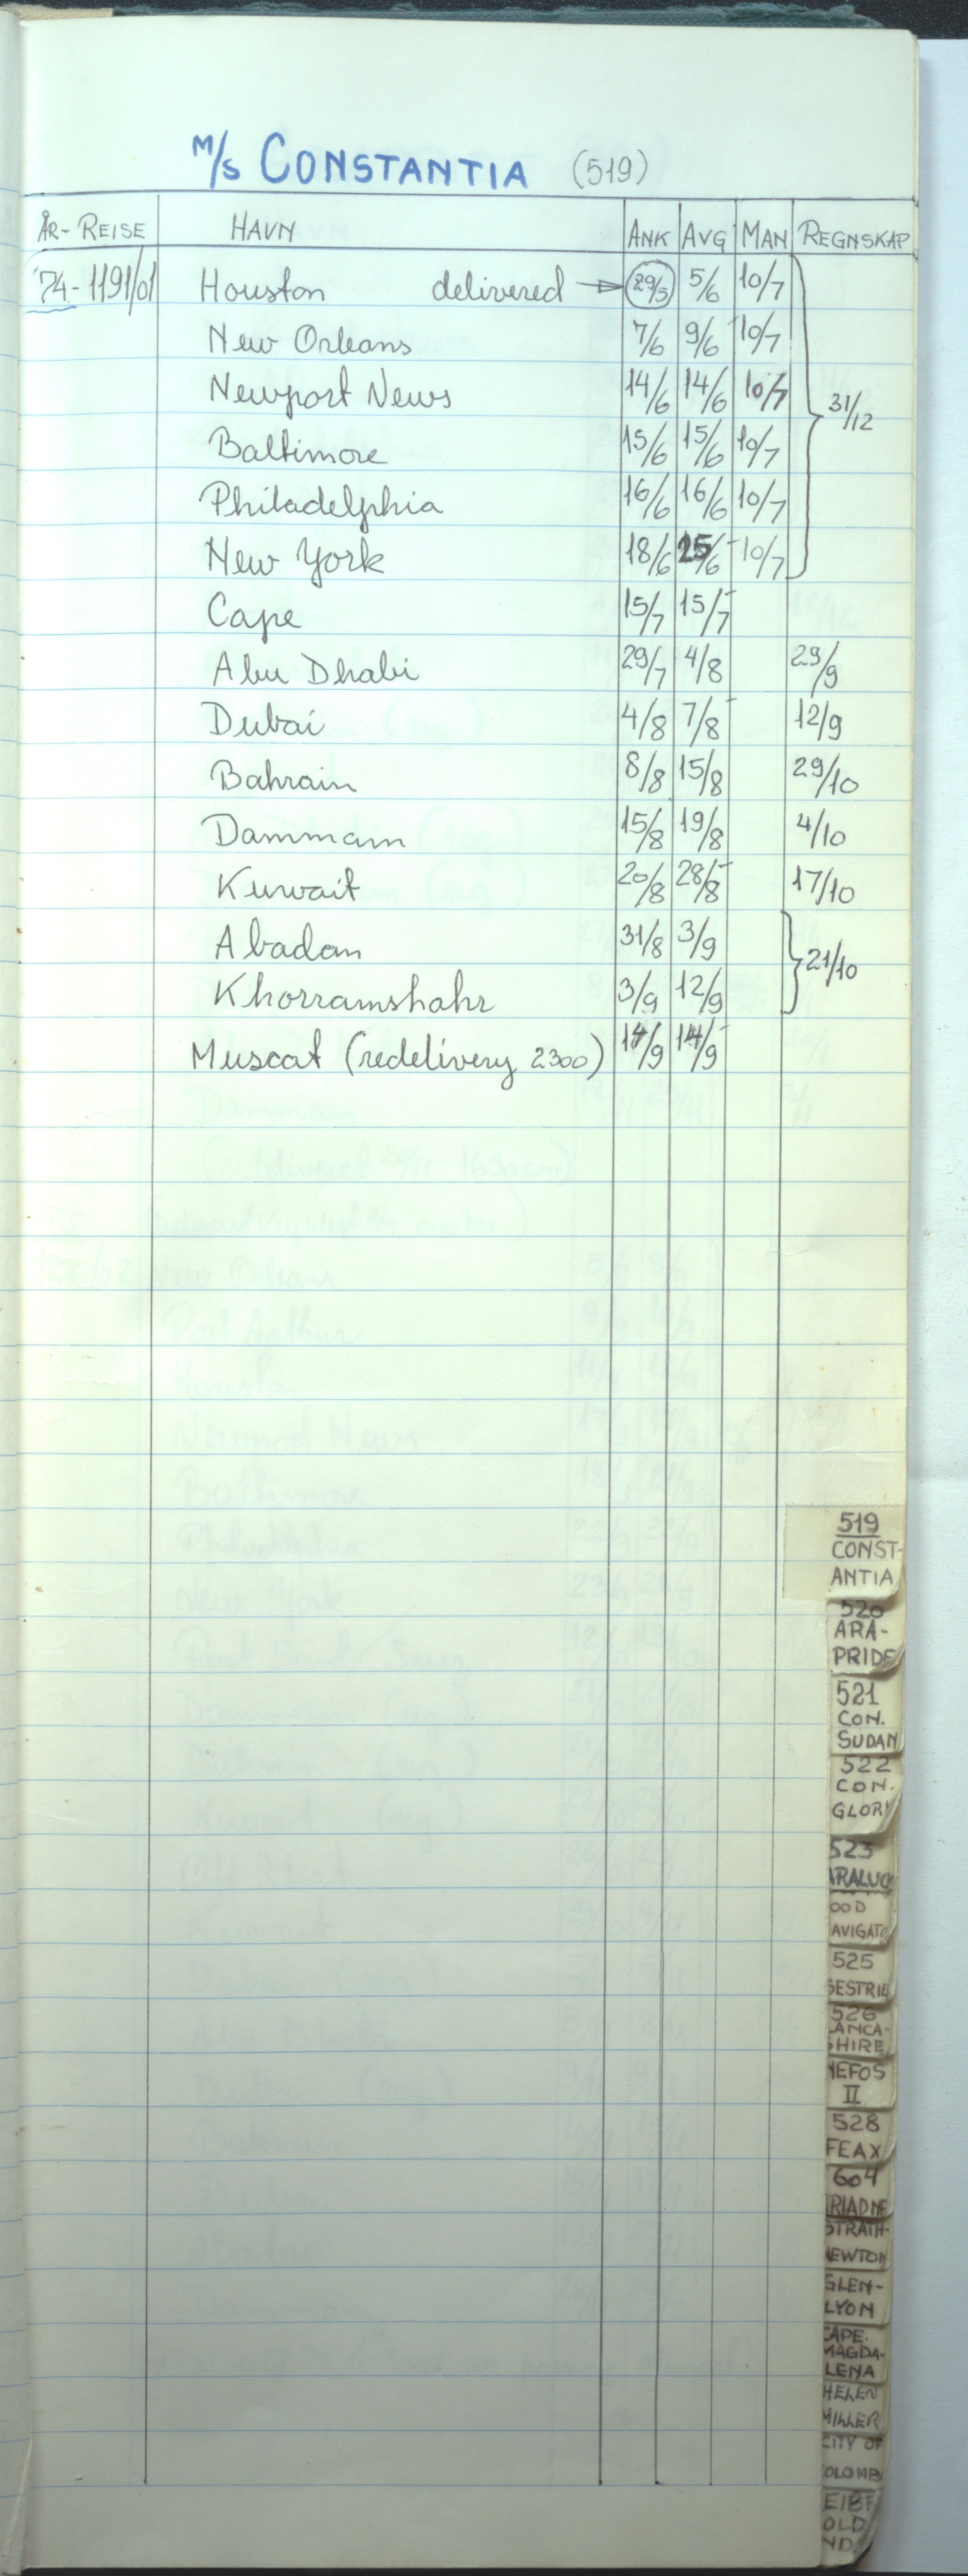 M/S CONSTANTIA (519)
ÅR-REISE HAVN ANK AVG MAN REGNSKAP
'74-1191/01 Houston delivered → 29/5 5/6 10/7
New Orleans 7/6 9/6 10/7
Newport News 14/6 14/6 10/7 31/12
Baltimore 15/6 15/6 10/7
Philadelphia 16/6 16/6 10/7
New York 18/6 25/6 10/7
Cape 15/7 15/7
Abu Dhabi 29/7 4/8 29/9
Dubai 4/8 7/8 12/9
Bahrain 8/8 15/8 29/10
Dammam 15/8 19/8 4/10
Kuwait 20/8 28/8 17/10
Abadan 31/8 3/9 21/10
Khorramshahr 3/9 12/9
Muscat (redelivery 2300) 14/9 14/9
519
CONST-
ANTIA
520
ARA-
PRIDE
521
CON.
SUDAN
522
CON.
GLORY
523
ARALUC
OOD
AVIGATO
525
SESTRIE
526
LANCA-
SHIRE
NEFOS
II
528
FEAX
604
RIADNE
STRATH-
NEWTON
GLEN-
LYON
CAPE.
MAGDA-
LENA
HELEN
MILLER
CITY OF
OLOMB
OLD